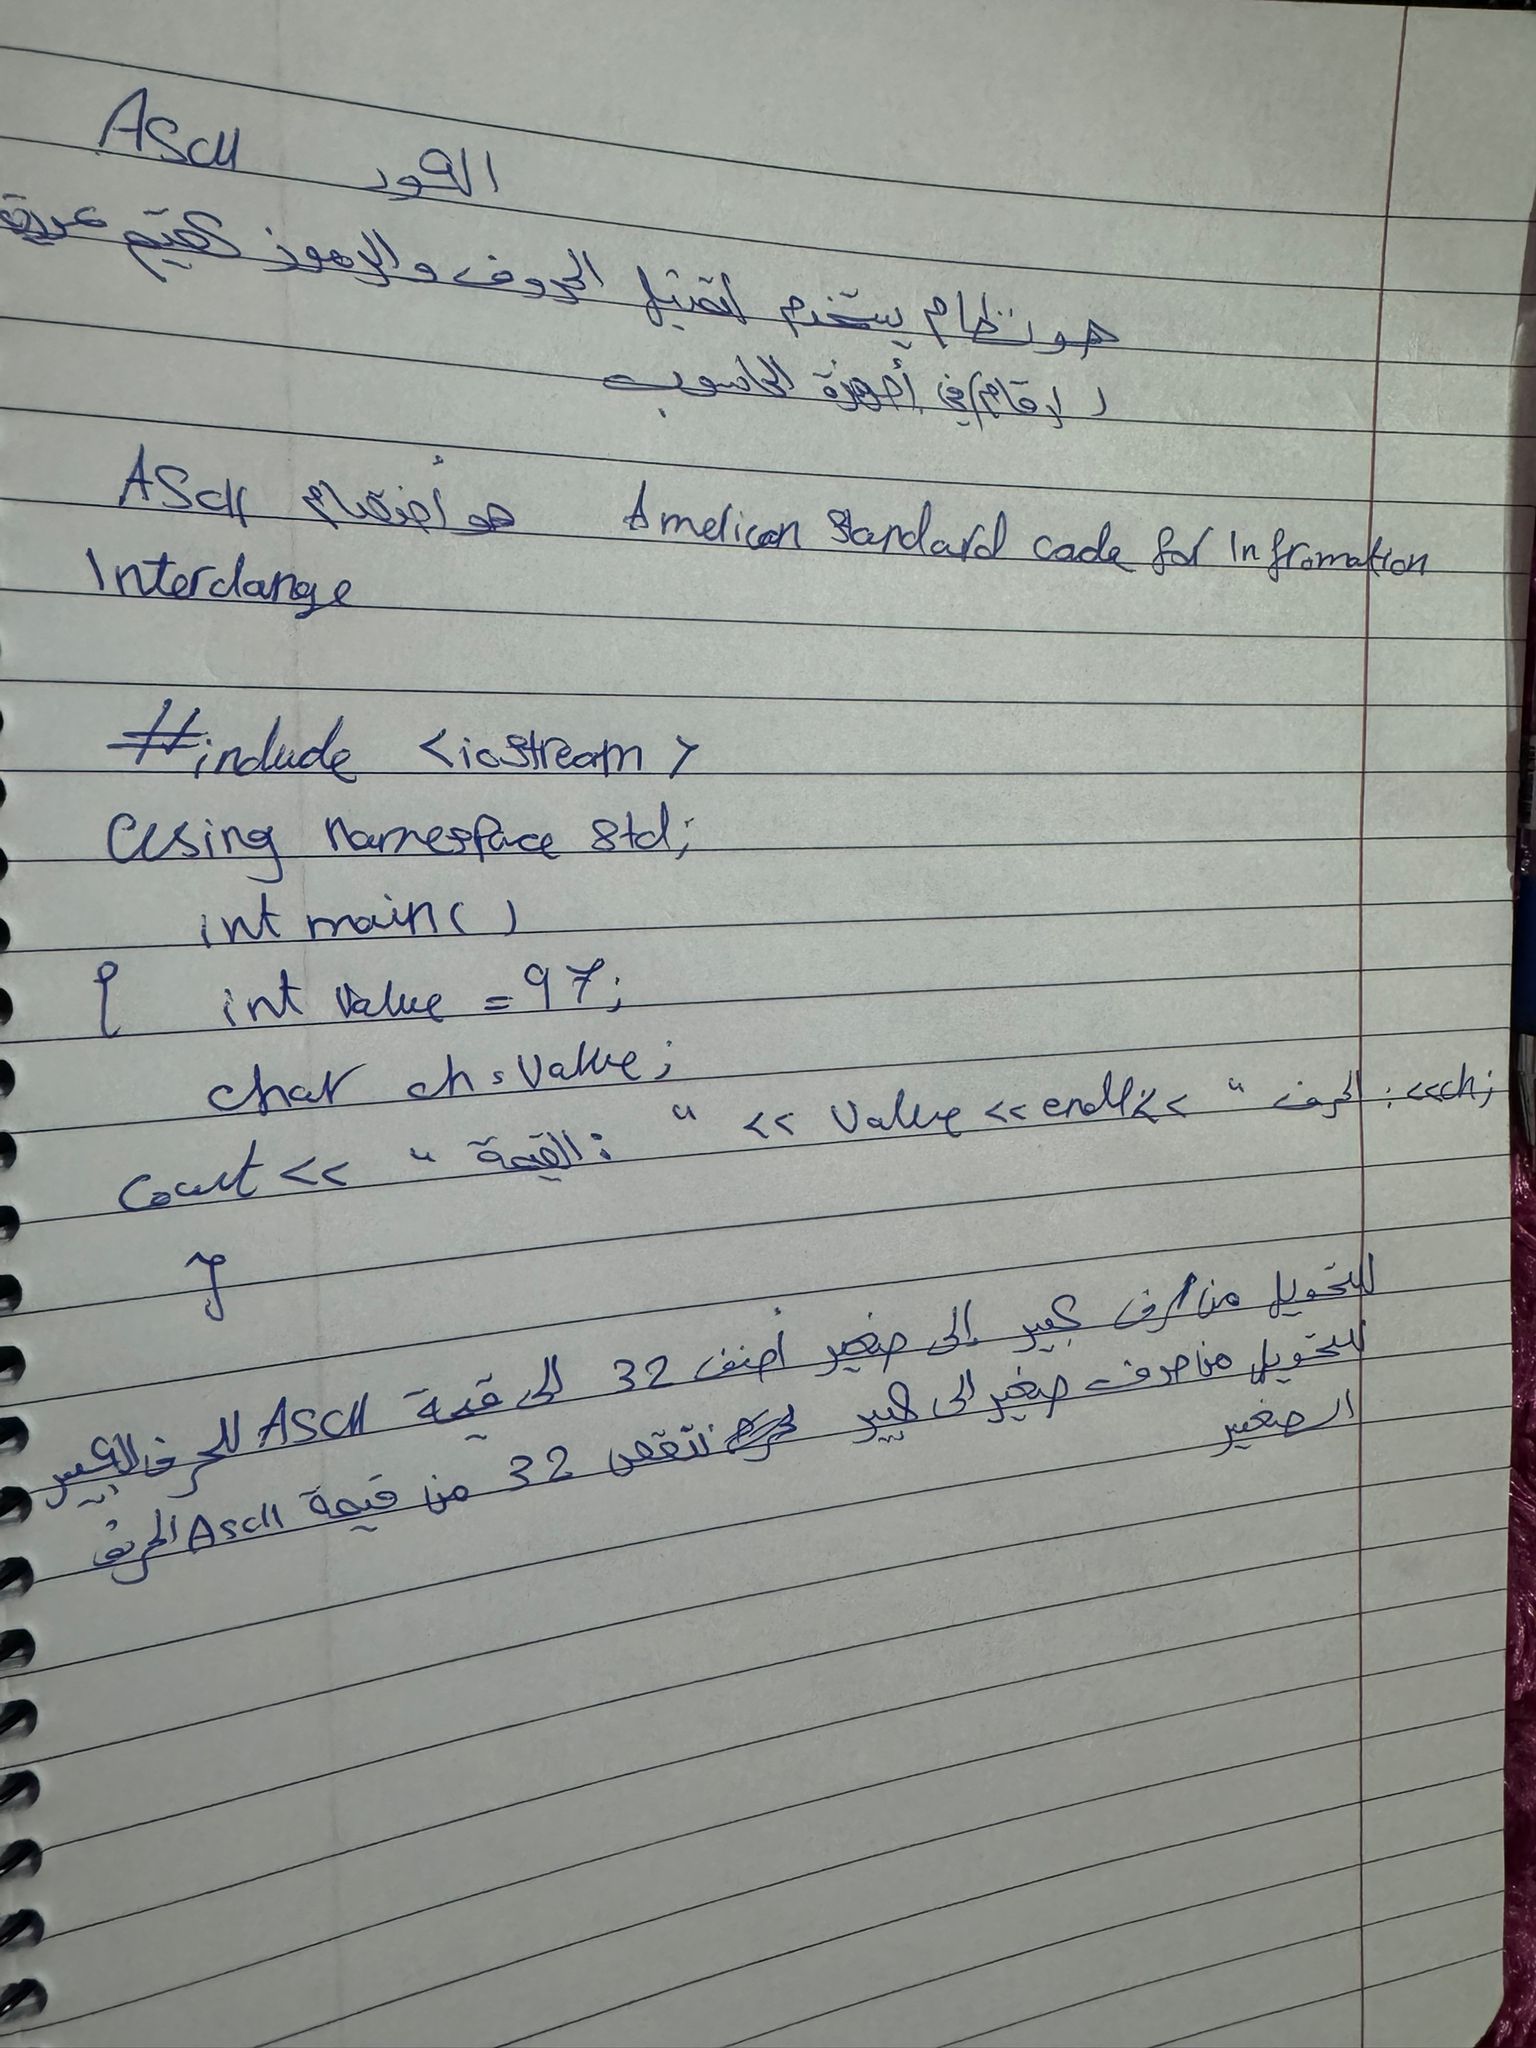 الكود ASCII
هو نظام يستخدم لتمثيل الحروف والرموز كقيم عددية
لارقام في أجهزة الحاسوب
ASCII هو أختصار American Standard code for Infromation
Interclange
#include <iostream>
using namespace std;
int main()
{ int value = 97;
char ch = value;
cout << " القيمة: " << value << endl << " الحرف : << ch;
}
للتحويل من حرف كبير إلى صغير أضف 32 الى قيمة ASCII للحرف الكبير
للتحويل من حرف صغير الى كبير ننقص 32 من قيمة ASCII الحرف
الصغير